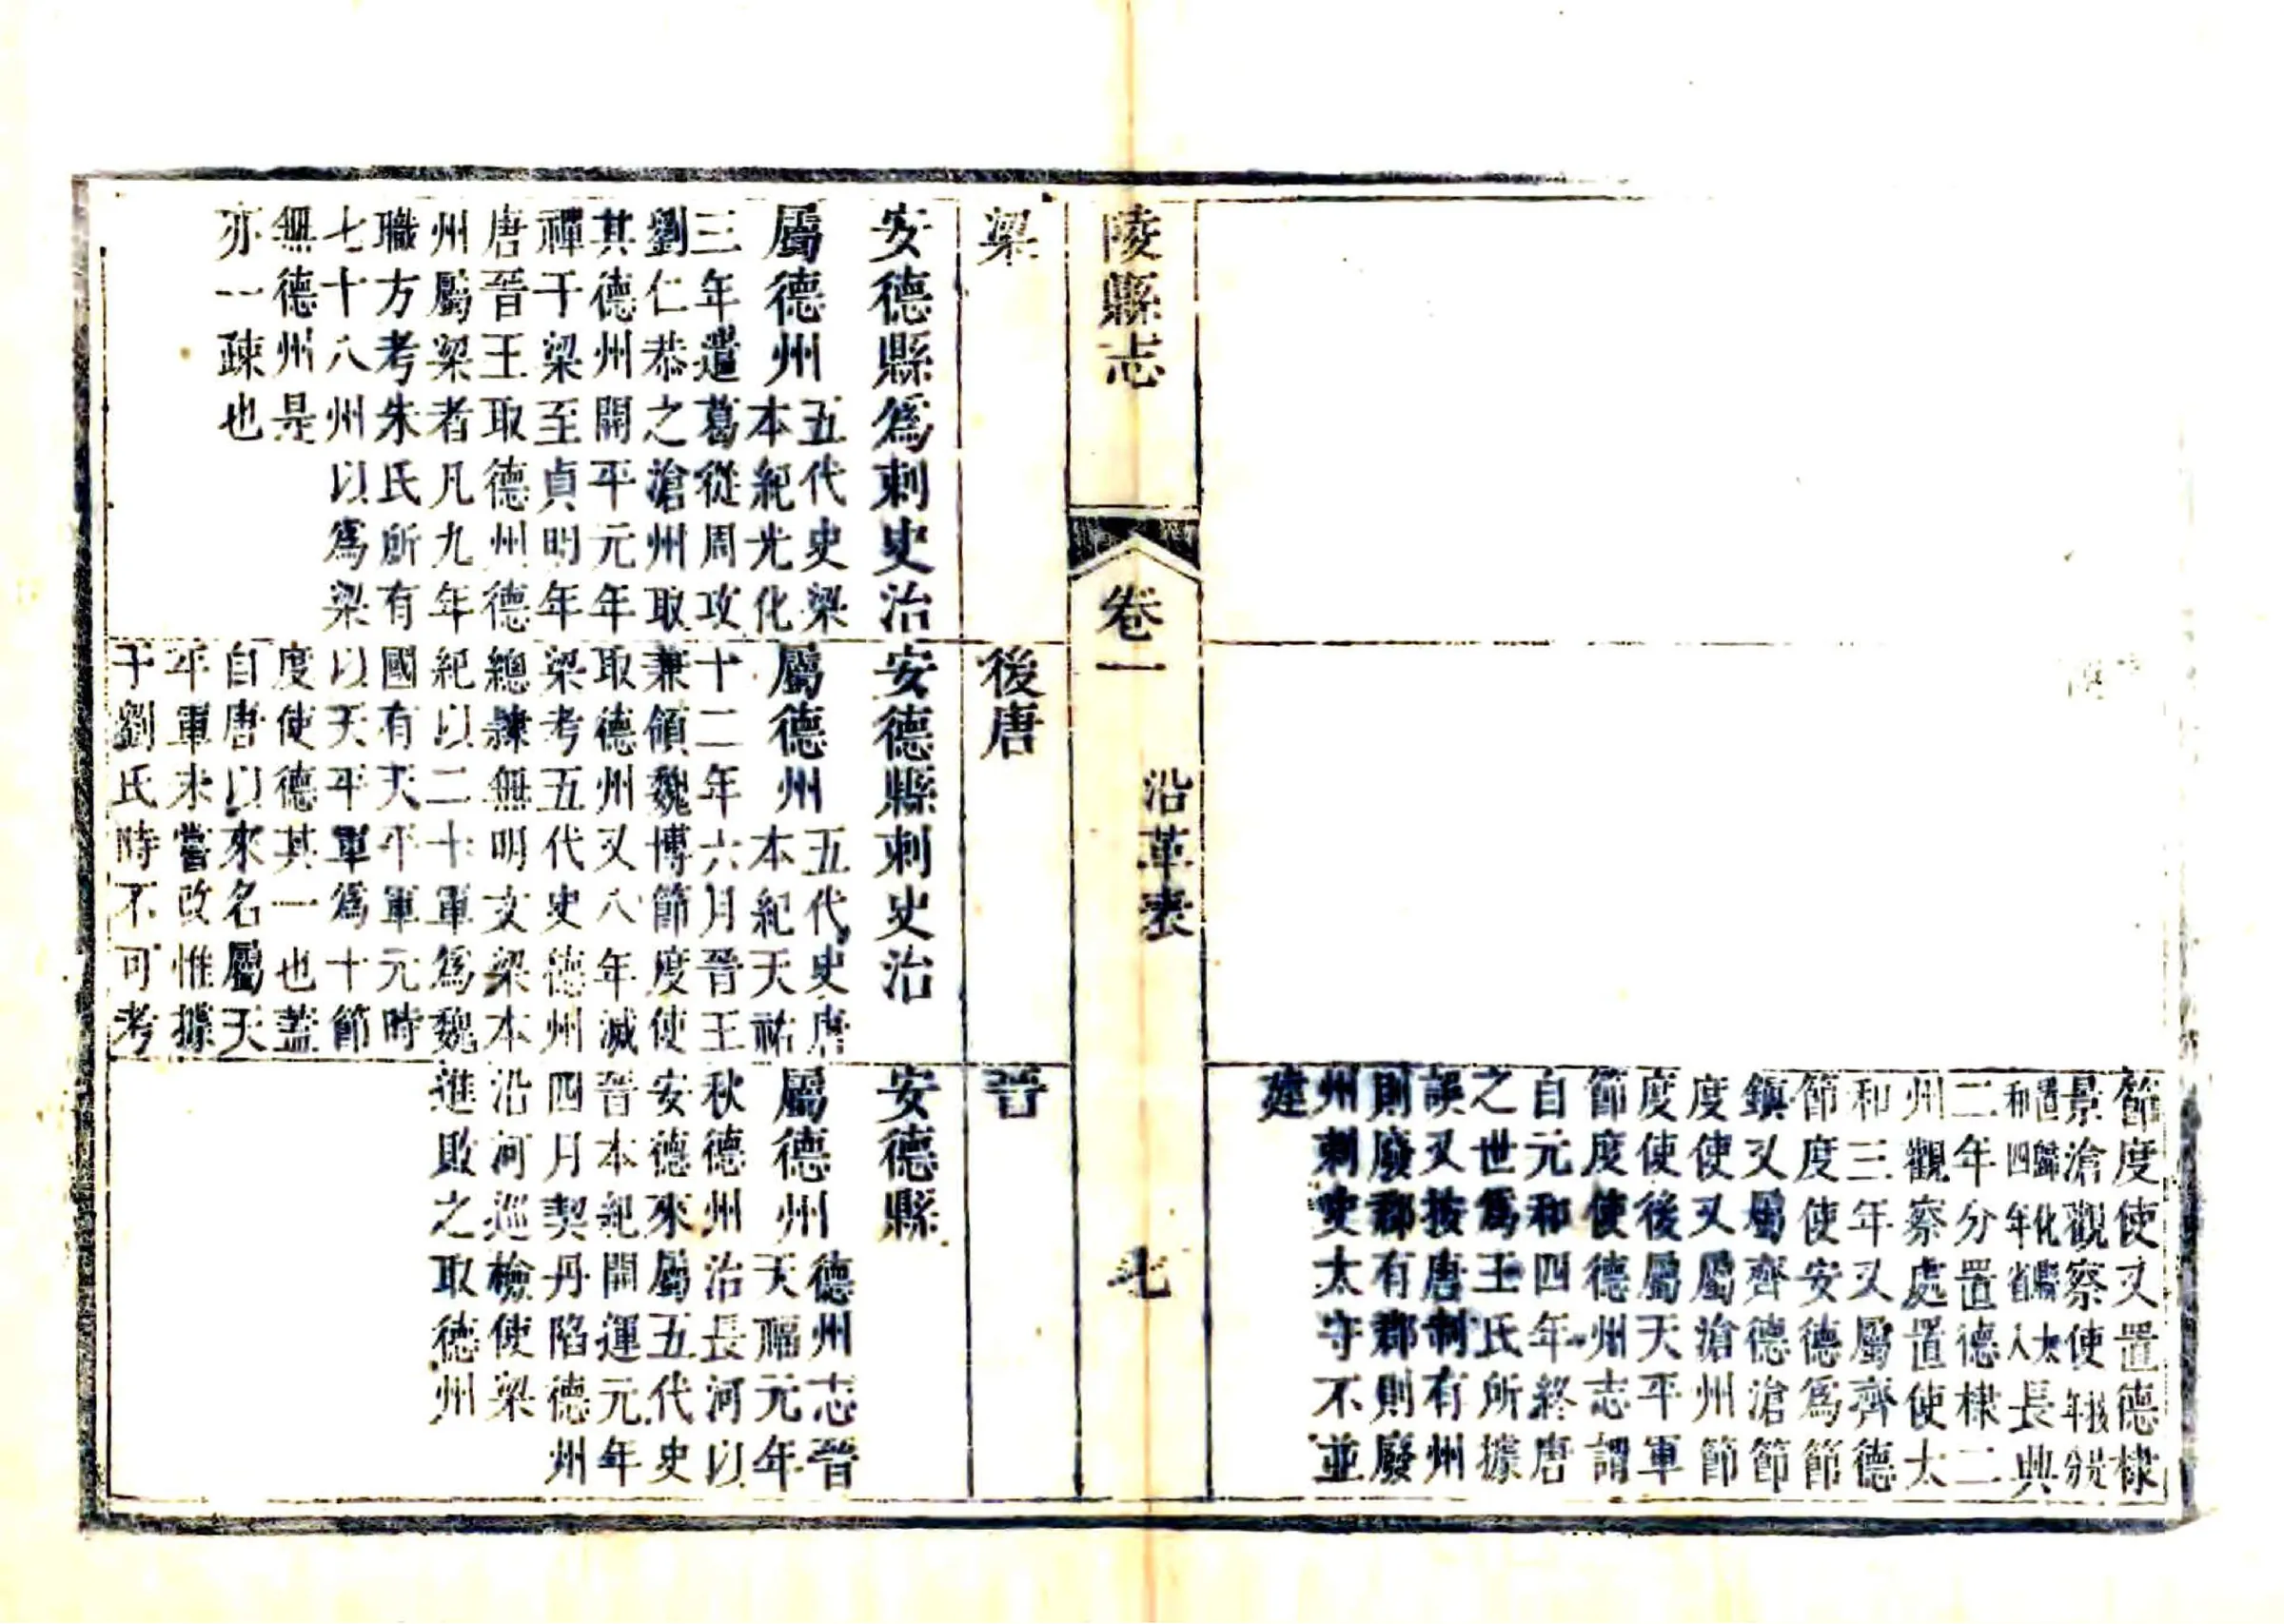 節度使又置德棣
景滄觀察使
長典
二年分置德棣二
州觀察處置使太
和三年又屬齊德
節度使安德爲節
鎮又屬齊德滄節
度使又屬滄州節
度使後屬天平軍
節度使德州志謂
自元和四年終唐
之世爲王氏所據
誤又按唐制有州
則廢郡有郡則廢
州刺史太守不並
建
陵縣志
卷一
沿革表
七
梁
安德縣爲刺史治
屬德州
五代史梁
本紀光化
三年遣葛從周攻
劉仁恭之滄州取
其德州開平元年
禪于梁至貞明年
唐晉王取德州德
州屬梁者凡九年
職方考朱氏所有
七十八州以爲梁
無德州是
亦一疎也
後唐
安德縣刺史治
屬德州
五代史唐
本紀天祐
十二年六月晉王
兼領魏博節度使
取德州又八年滅
梁考五代史德州
總隸無明文梁本
紀以二十軍爲魏
國有天平軍元時
以天平軍爲十節
度使德其一也蓋
自唐以來名屬天
年軍未嘗改惟據
于劉氏時不可考
晉
安德縣
屬德州
德州志晉
天福元年
秋德州治長河以
安德來屬五代史
晉本紀開運元年
四月契丹陷德州
沿河巡檢使梁
進敗之取德州